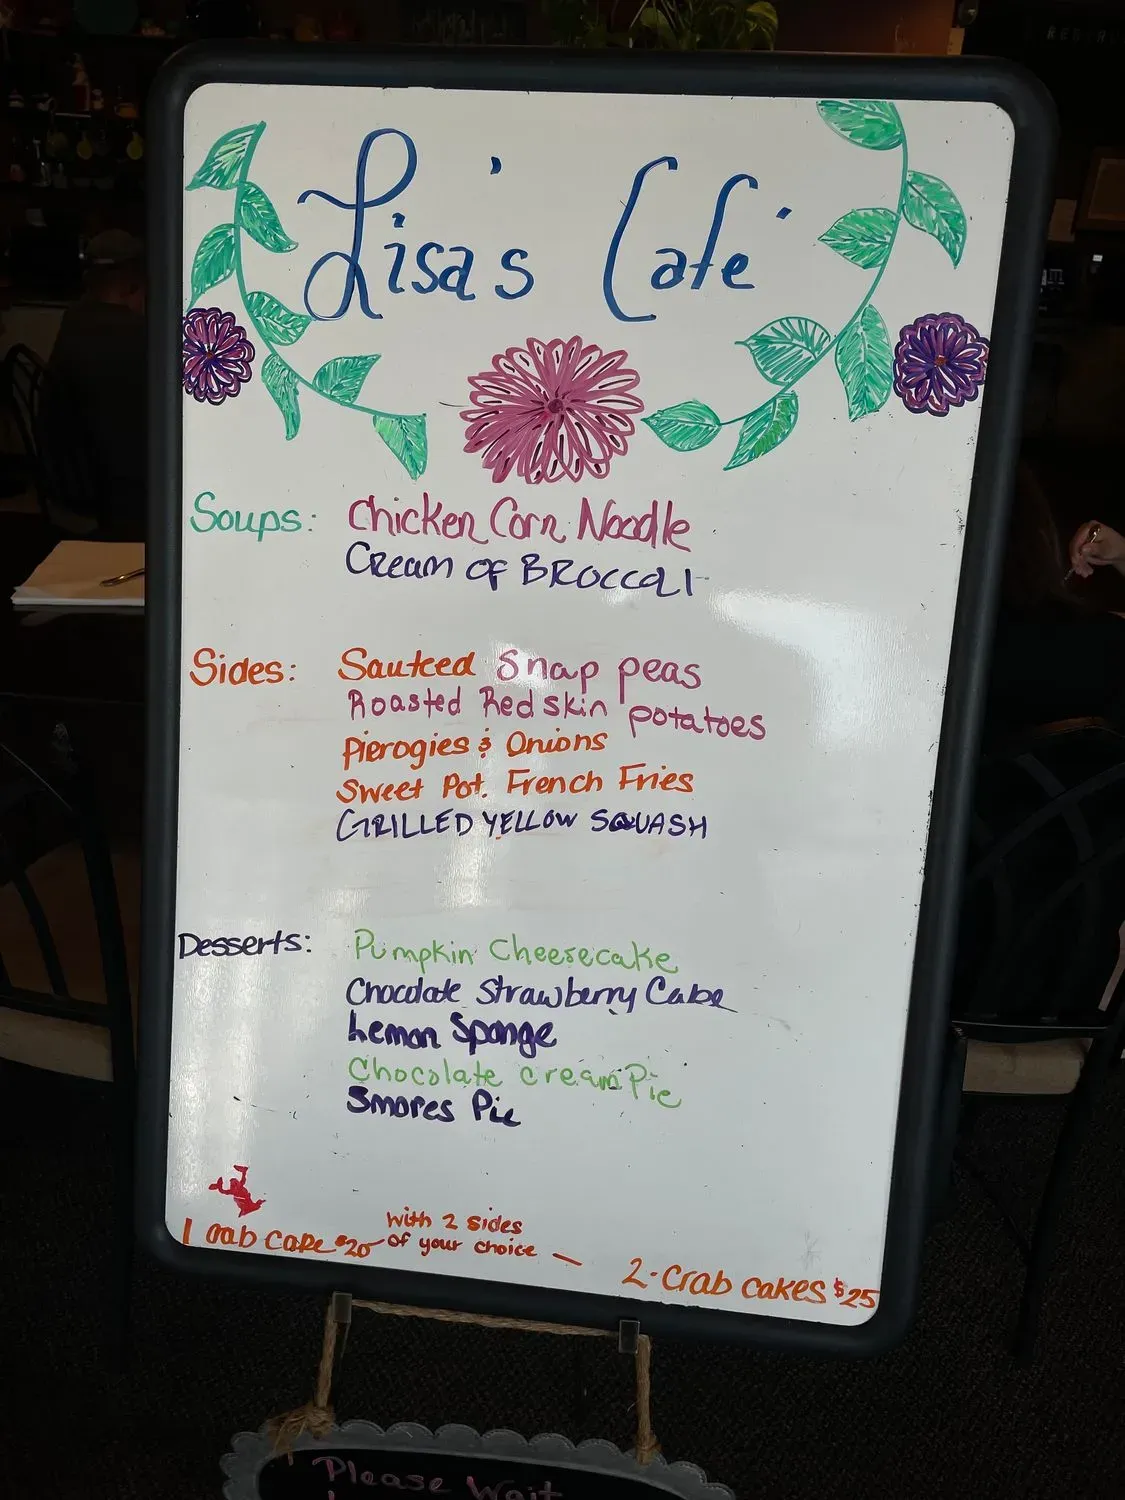 Lisa's Café
Soups: Chicken Corn Noodle
Cream of BROCCOLI
Sides: Sauteed Snap peas
Roasted Redskin potatoes
Pierogies & Onions
Sweet Pot. French Fries
GRILLED YELLOW SQUASH
Desserts: Pumpkin Cheesecake
Chocolate Strawberry Cake
Lemon Sponge
Chocolate cream Pie
Smores Pie
1 Crab Cake $20 with 2 sides
of your choice — 2-Crab Cakes $25
Please Wait